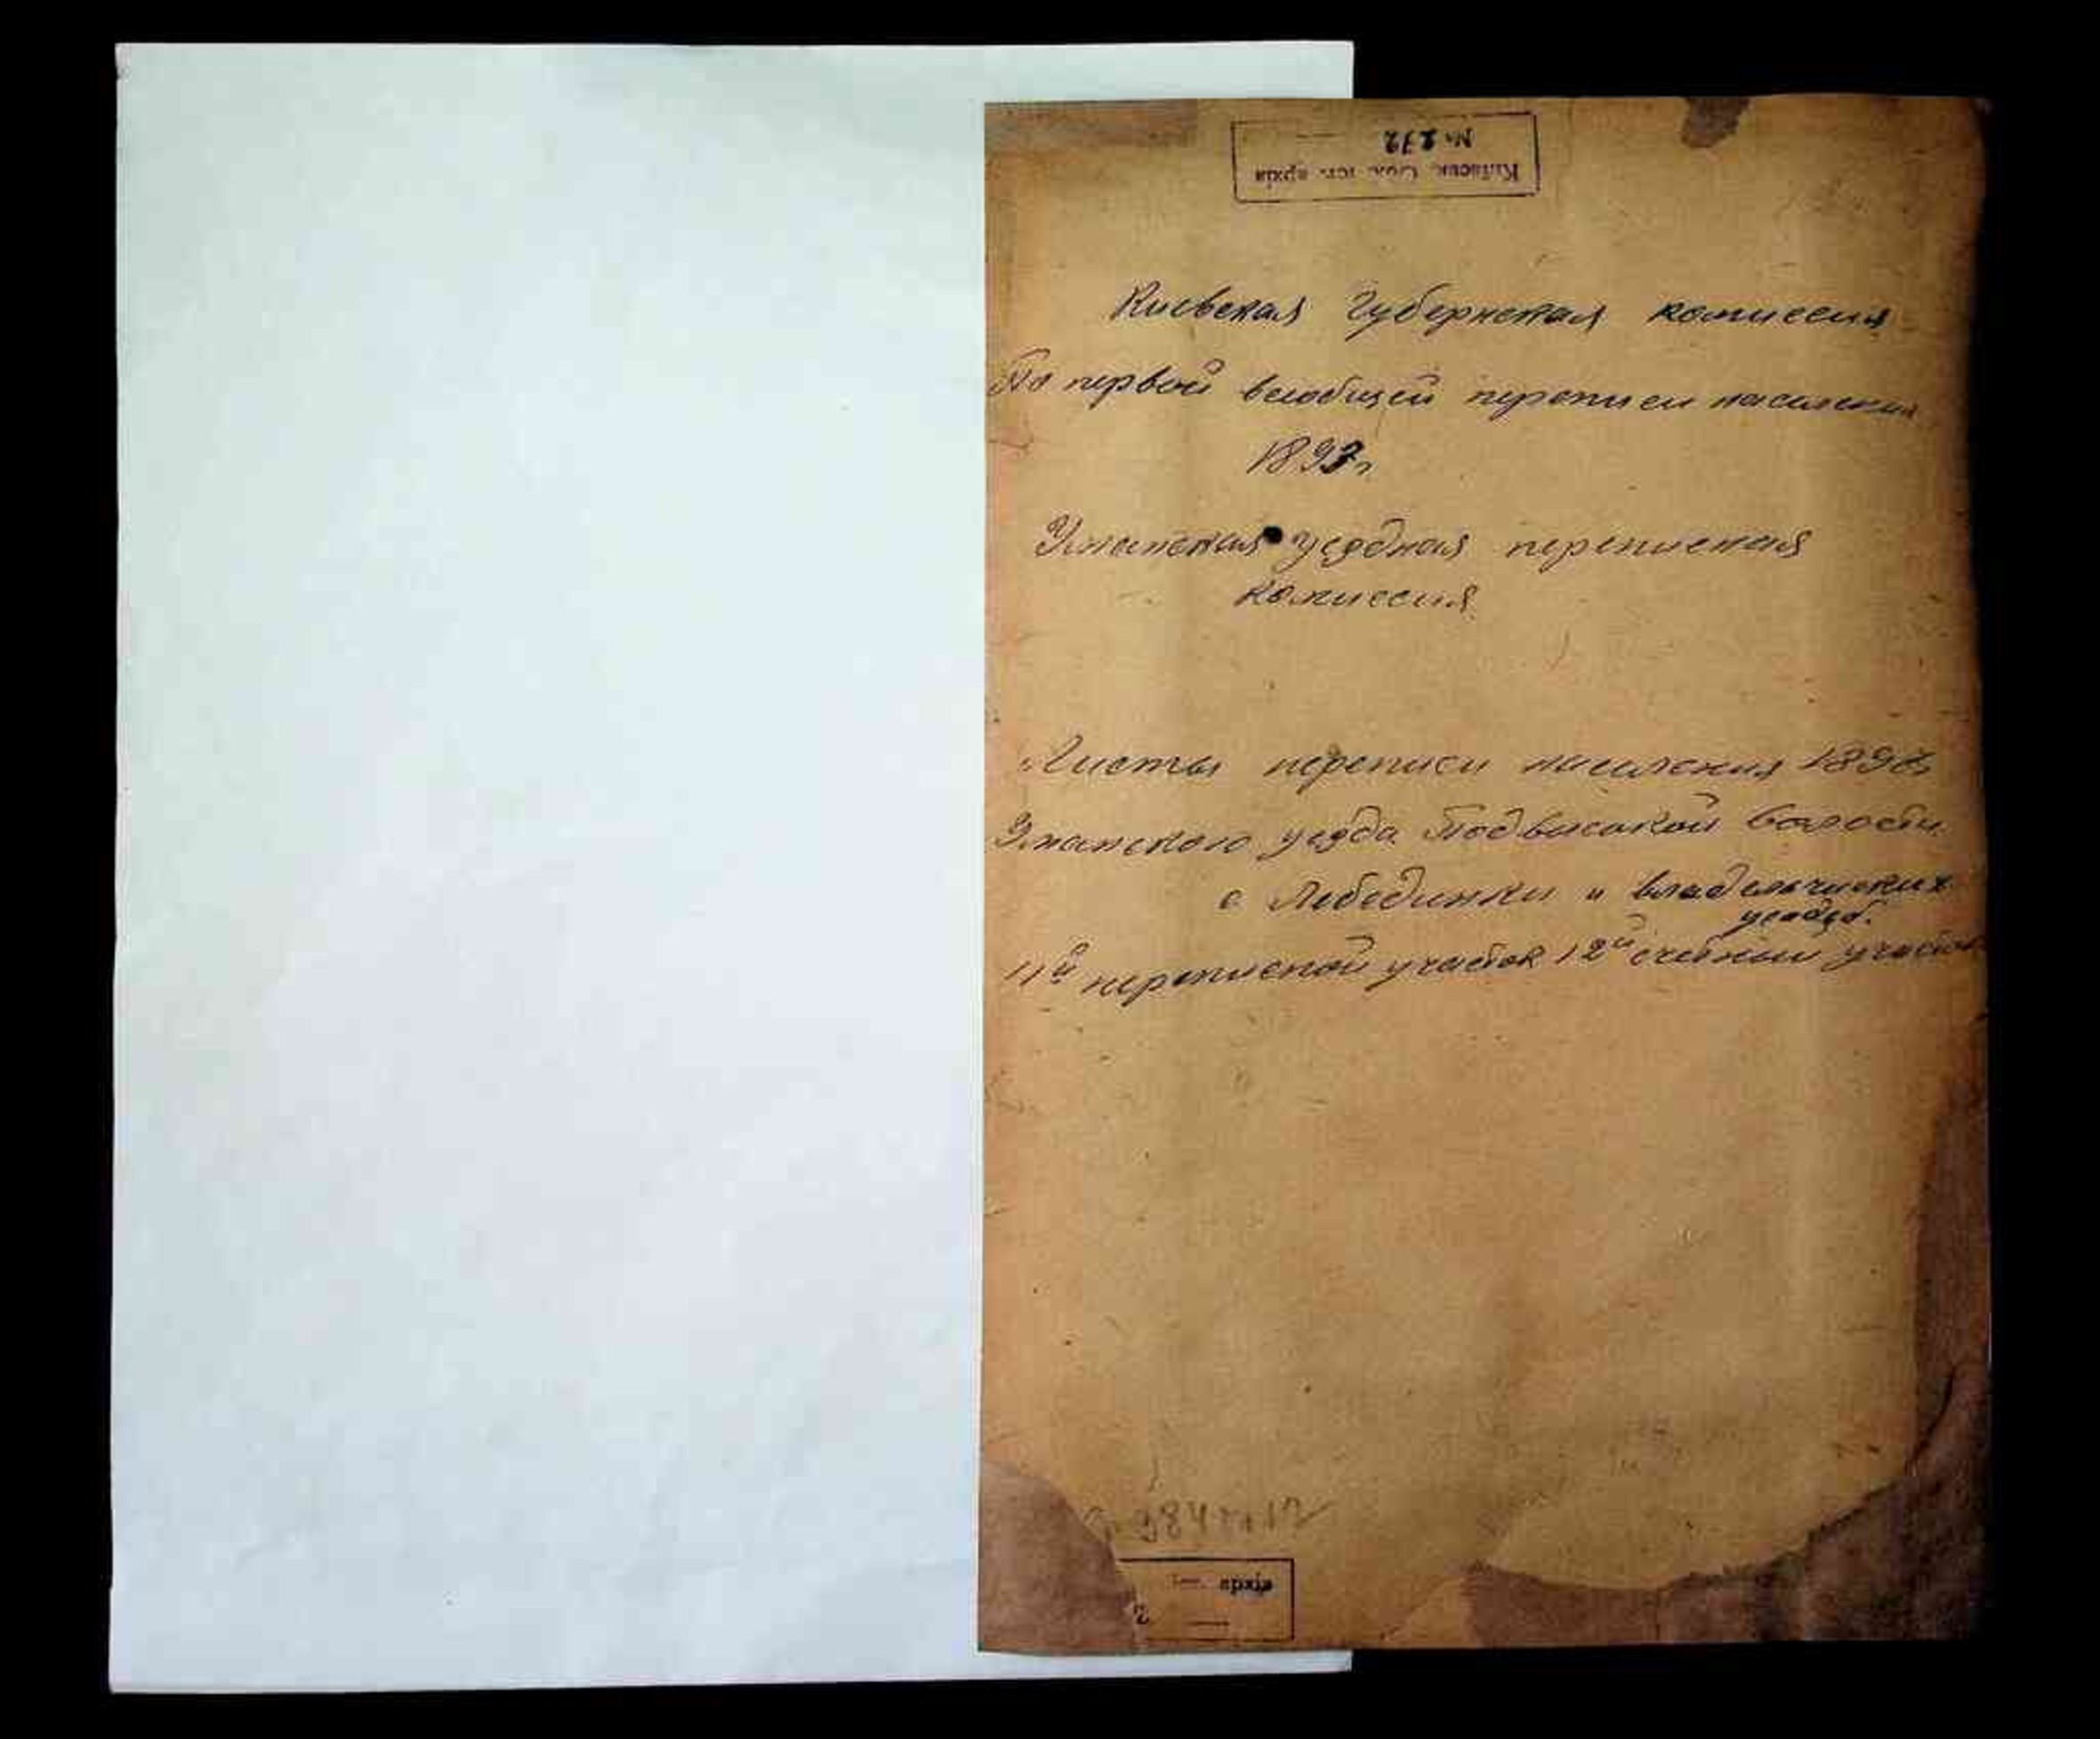 № 272
Київськ. Обл. іст. архів
Киевская Губернская комиссия
По первой всеобщей переписи населения
1897г
Уманская уездная переписная
комиссия
Листы переписи населения 1897
Уманского уезда Подвысокой волости
с Лебединки и владельческих
усадеб.
11й переписной участок 12й счетный участок
архів